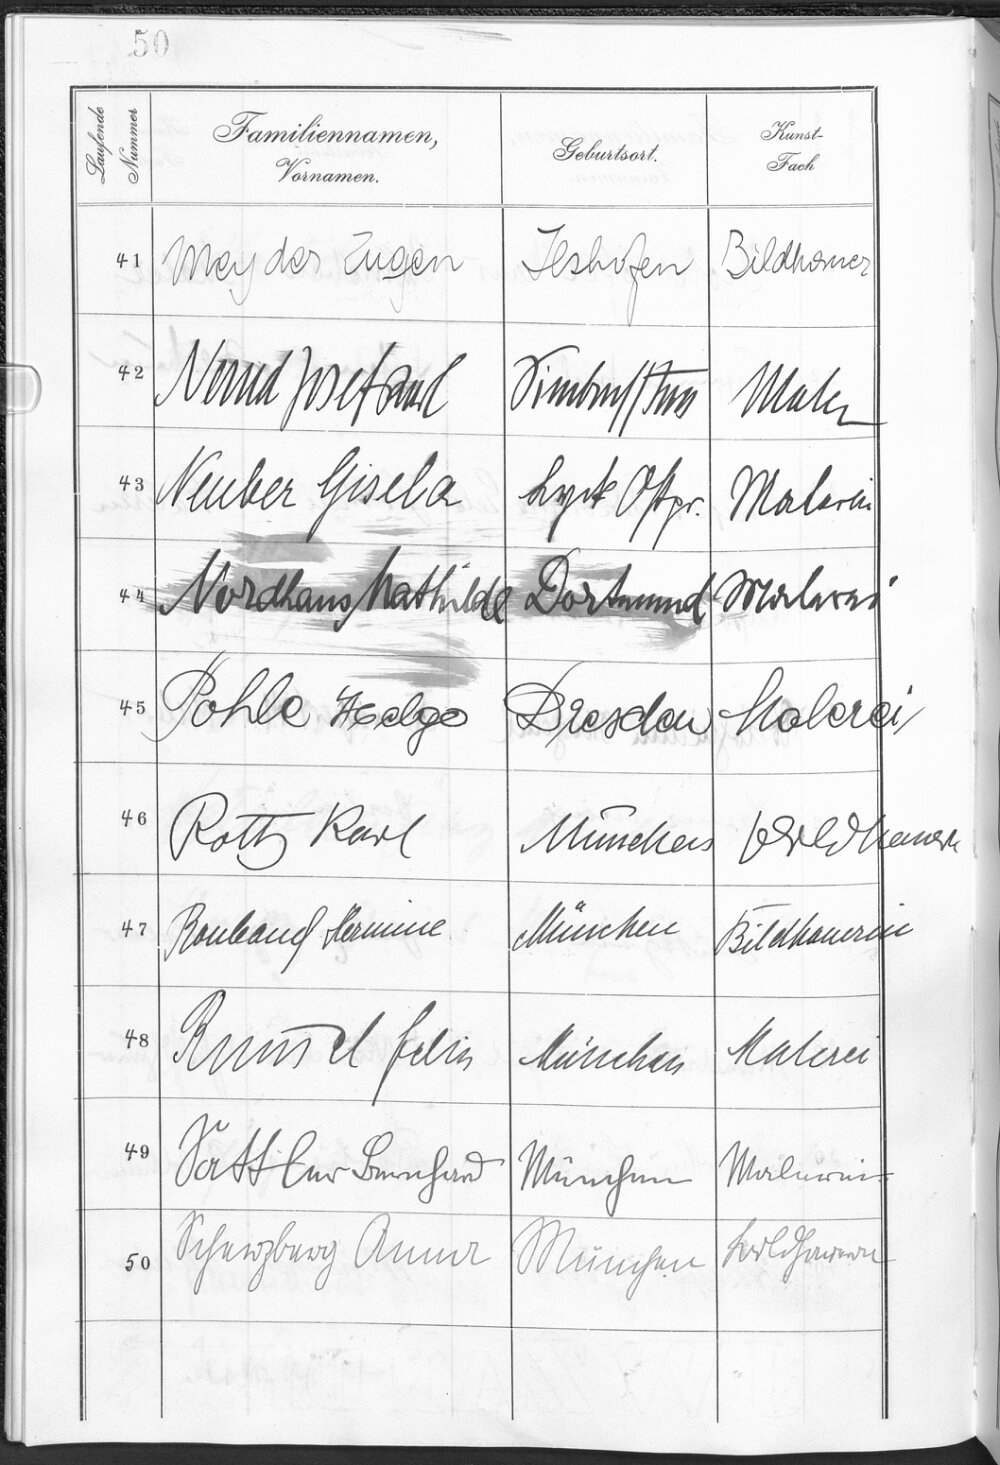 50
Laufende Nummer
Familiennamen, Vornamen.
Geburtsort.
Kunst-Fach
41 Meyder Eugen Ilshofen Bildhauer
42 Josef Maler
43 Neuber Gisela Lyck Ostpr. Malerin
44 Nordhaus Mathilde Dortmund Malerei
45 Pohle Helge Dresden Malerei
46 Rotts Karl München Bildhauerei
47 Roubaud Hermine München Bildhauerin
48 Felix München Malerei
49 Sattler Bernhard München Malerei
50 Scherzberg Anna München Bildhauerei